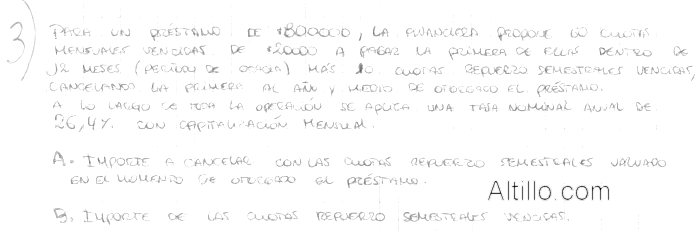 3) PARA UN PRÉSTAMO DE $800000, LA FINANCIERA PROPONE 60 CUOTAS
MENSUALES VENCIDAS DE $20000 A PAGAR LA PRIMERA DE ELLAS DENTRO DE
12 MESES (PERÍODO DE GRACIA) MÁS 10 CUOTAS REFUERZO SEMESTRALES VENCIDAS,
CANCELANDO LA PRIMERA AL AÑO Y MEDIO DE OTORGADO EL PRÉSTAMO.
A LO LARGO DE TODA LA OPERACIÓN SE APLICA UNA TASA NOMINAL ANUAL DE
26,4% CON CAPITALIZACIÓN MENSUAL.
A. IMPORTE A CANCELAR CON LAS CUOTAS REFUERZO SEMESTRALES VALUADO
EN EL MOMENTO DE OTORGADO EL PRÉSTAMO.
Altillo.com
B. IMPORTE DE LAS CUOTAS REFUERZO SEMESTRALES VENCIDAS.